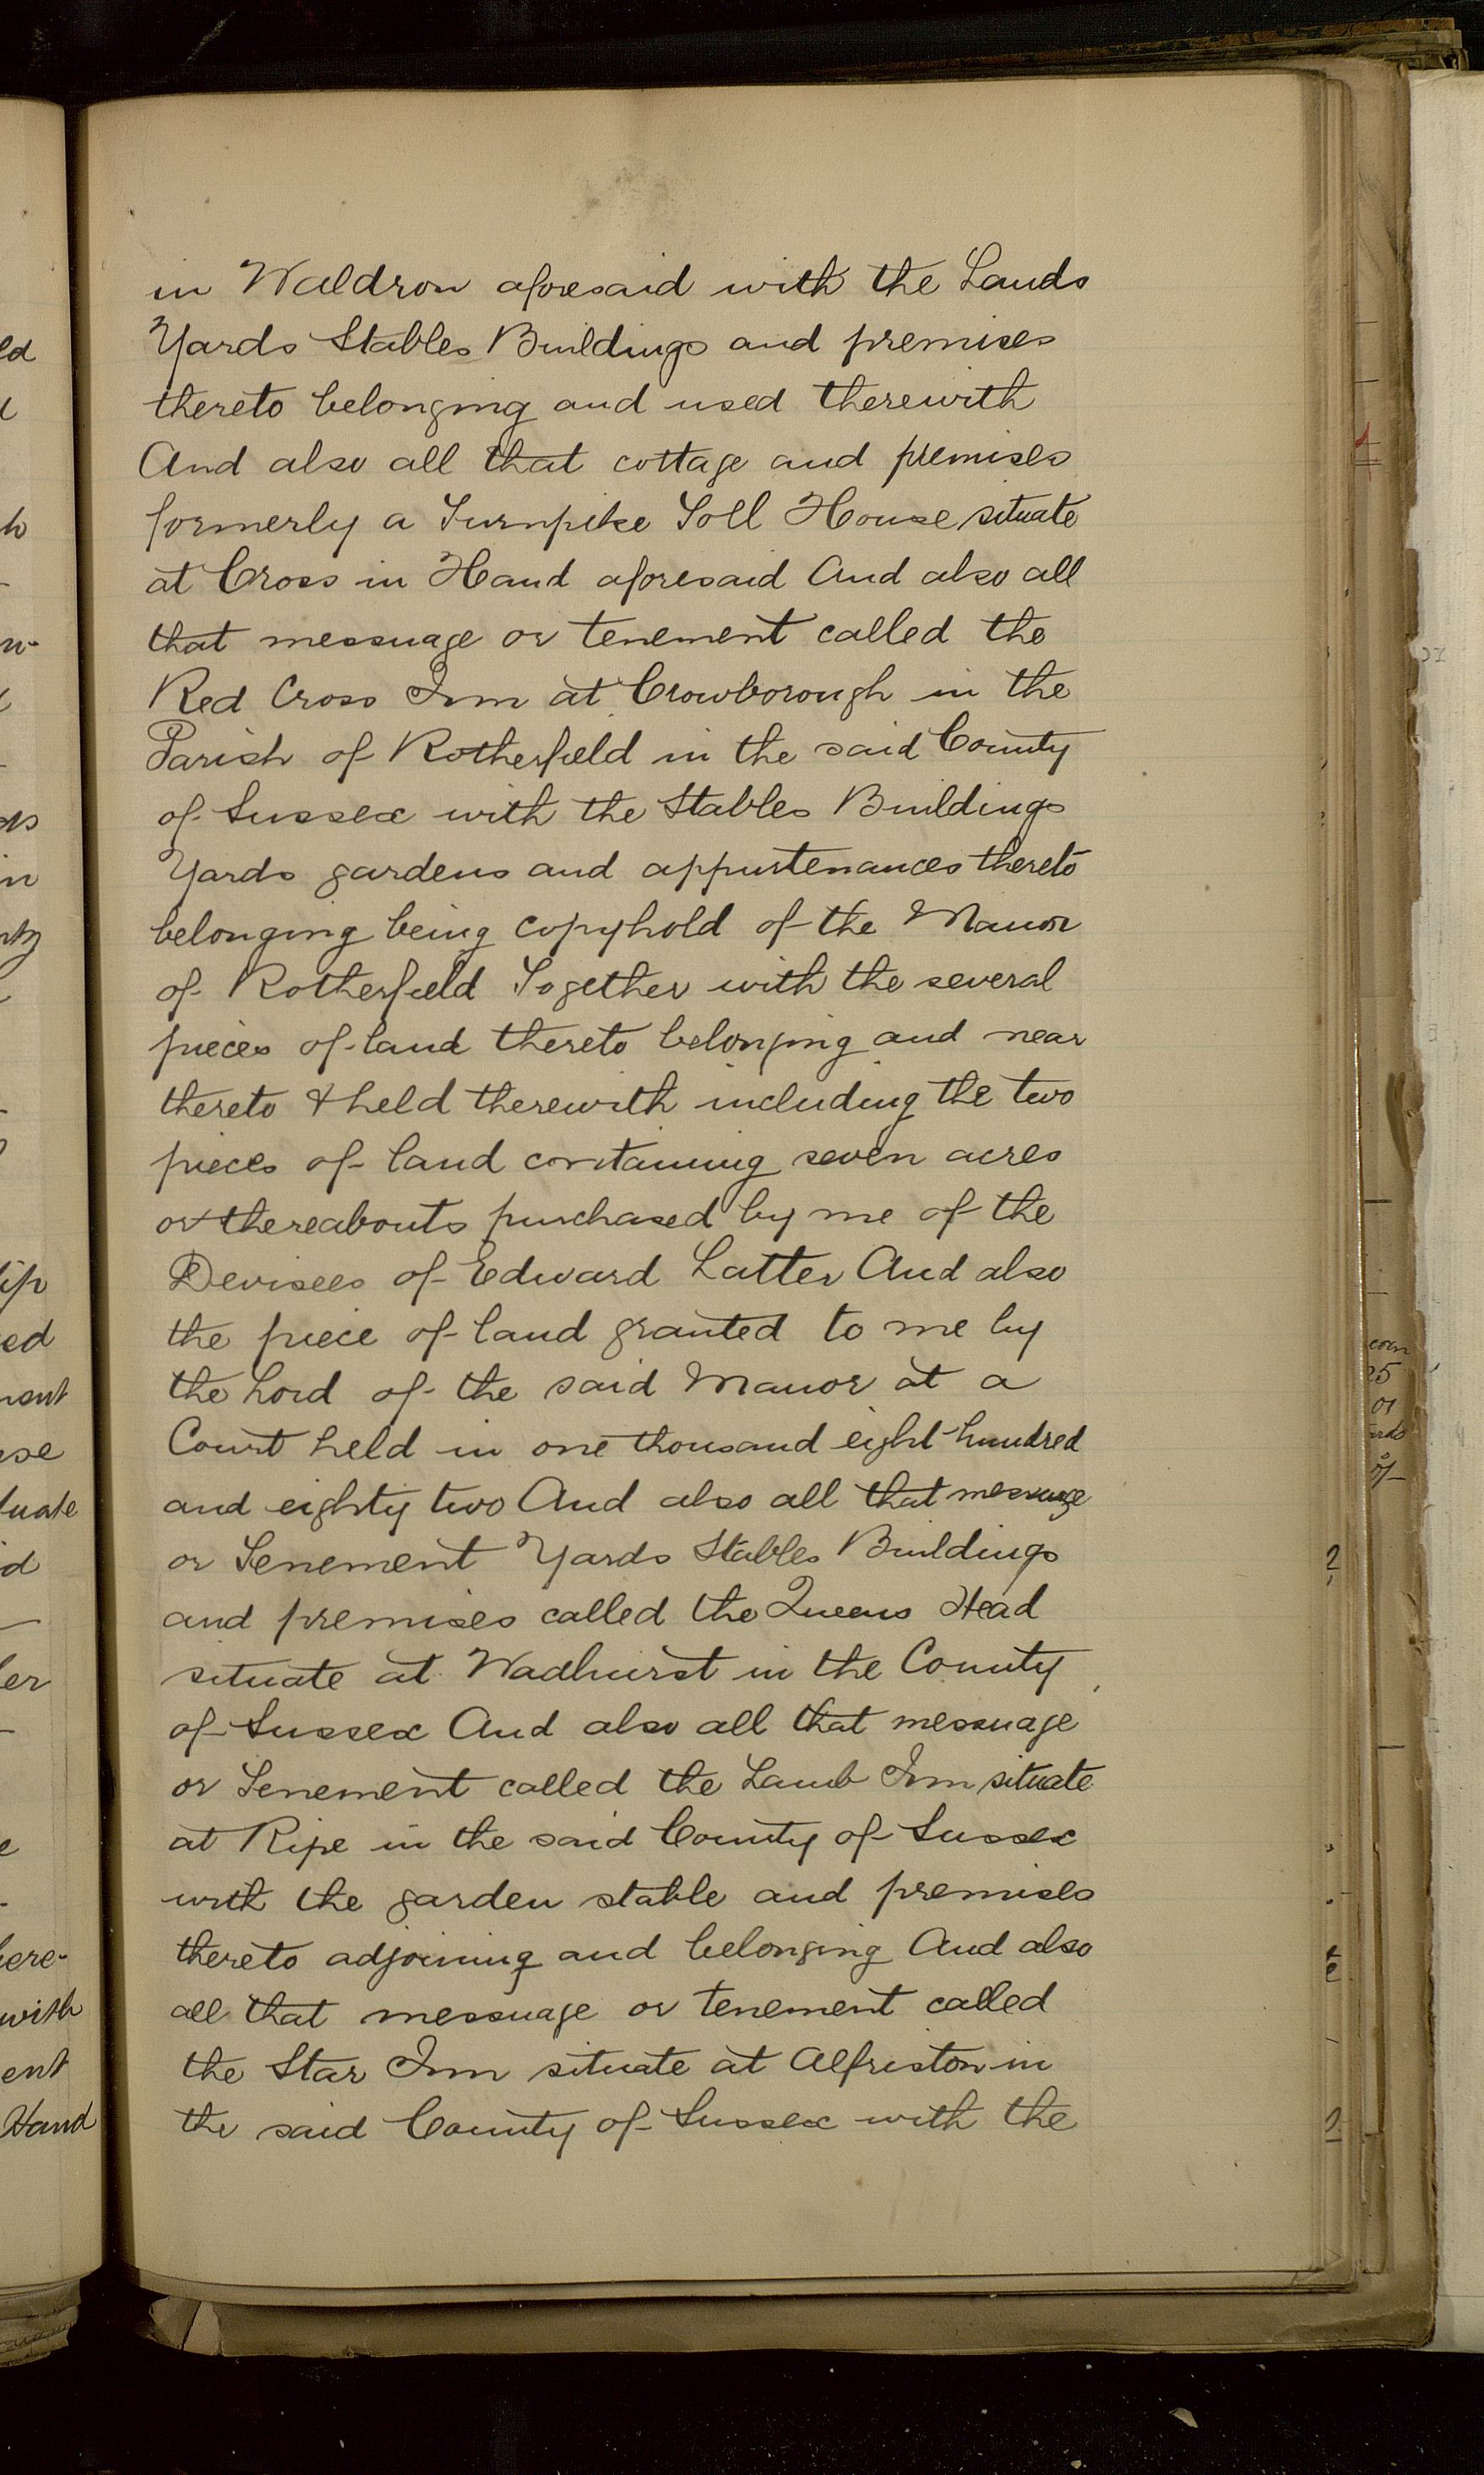 in Waldron aforesaid with the Lands
Yards Stables Buildings and premises
thereto belonging and used therewith
And also all that cottage and premises
formerly a Turnpike Toll House situate
at Cross in Hand aforesaid And also all
that messuage or tenement called the
Red Cross Inn at Crowborough in the
Parish of Rotherfield in the said County
of Sussex with the Stables Buildings
Yards gardens and appurtenances thereto
belonging being copyhold of the Manor
of Rotherfield Together with the several
pieces of land thereto belonging and near
thereto & held therewith including the two
pieces of land containing seven acres
or thereabouts purchased by me of the
Devisees of Edward Latter And also
the piece of land granted to me by
the Lord of the said Manor at a
Court held in one thousand eight hundred
and eighty two And also all that messuage
or Tenement Yards Stables Buildings
and premises called the Queens Head
situate at Wadhurst in the County
of Sussex And also all that messuage
or Tenement called the Lamb Inn situate
at Ripe in the said County of Sussex
with the garden stable and premises
thereto adjoining and belonging And also
all that messuage or tenement called
the Star Inn situate at Alfriston in
the said County of Sussex with the